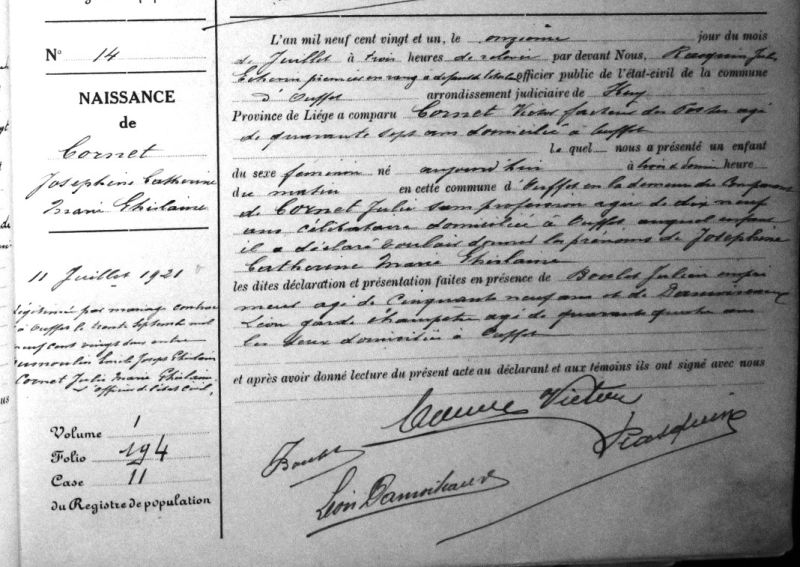 N° 14
NAISSANCE
de
Cornet
Josephine Catherine
Marie Ghislaine
11 Juillet 1921
Légitimée par mariage contracté
à Ouffet le trente Septembre mil
neuf cent vingt deux entre
Emile Joseph Ghislain
Cornet Julie Marie Ghislaine
L'officier de l'état civil,
Volume 1
Folio 194
Case 11
du Registre de population
L'an mil neuf cent vingt et un, le onzième jour du mois
de Juillet à trois heures de relevée par devant Nous, Rasquin Jules
Echevin premier en rang officier public de l'état-civil de la commune
d'Ouffet arrondissement judiciaire de Huy
Province de Liége a comparu Cornet Victor facteur des Postes agé
de quarante sept ans domicilié à Ouffet
le quel nous a présenté un enfant
du sexe féminin né aujourd'hui à trois & demie heure
du matin en cette commune d'Ouffet en la demeure du Comparant
de Cornet Julie sans profession agée de dix neuf
ans célibataire domiciliée à Ouffet auquel enfant
il a déclaré vouloir donner les prénoms de Josephine
Catherine Marie Ghislaine
les dites déclaration et présentation faites en présence de Boulet Julien
agé de Cinquante neuf ans et de Damoiseaux
Léon garde champetre agé de quarante quatre ans
les deux domiciliés à Ouffet
et après avoir donné lecture du présent acte au déclarant et aux témoins ils ont signé avec nous
Cornet Victor
Boulet
Rasquin
Léon Damoiseaux